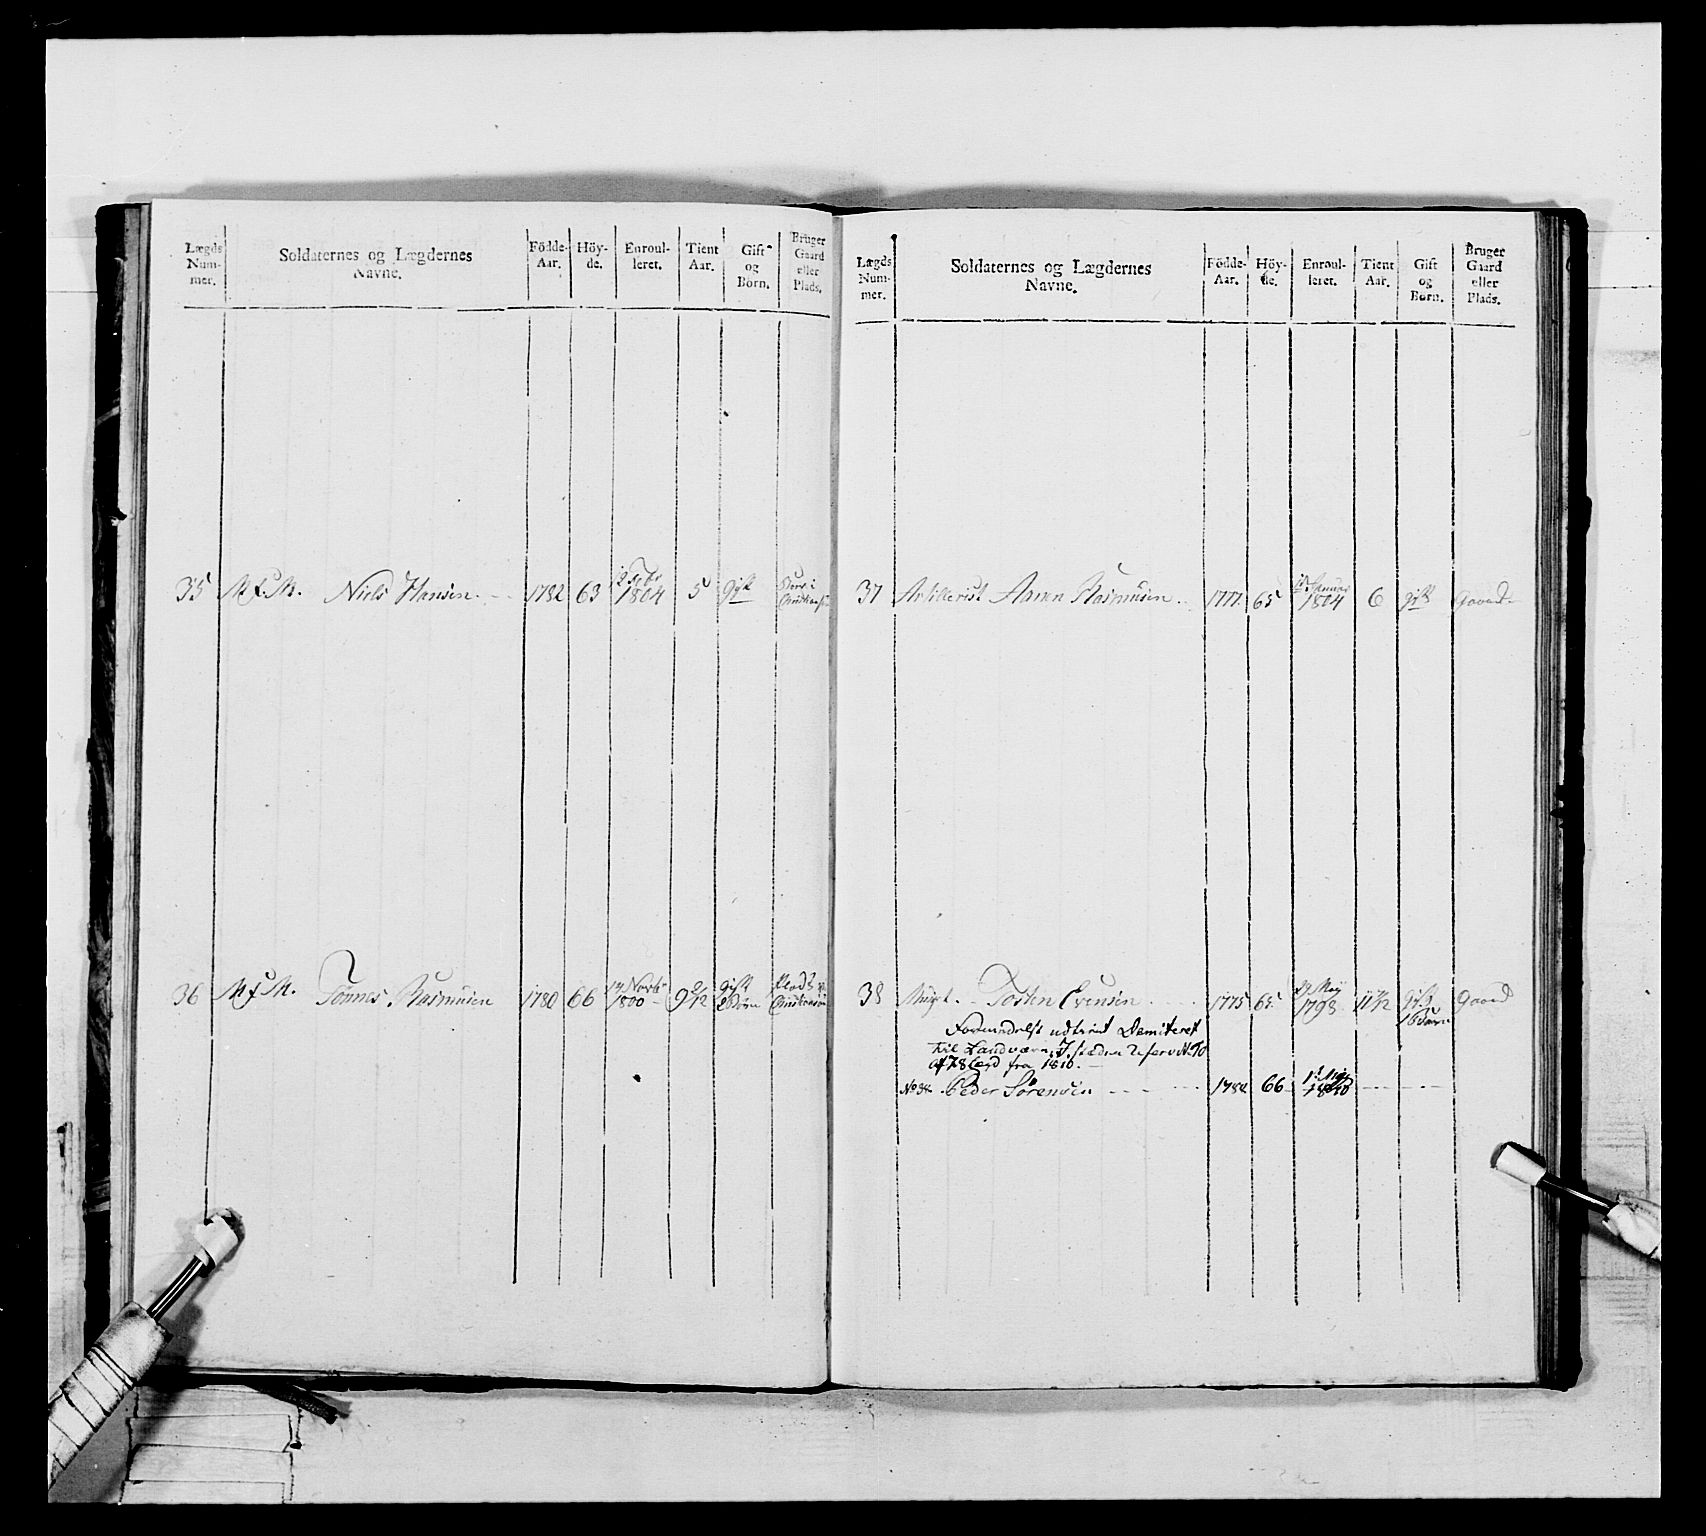 Lægds Num- mer.
Soldaternes og Lægdernes Navne.
Födde- Aar.
Höy- de.
Enroul- leret.
Tient Aar.
Gift og Börn.
Bruger Gaard eller Plads.
35 Niels Hansen. 1782 63 1804 5 gift
36 Tönnes Rasmusen 1780 66 1800 9 2/12 gift 2 Börn Plads
Lægds Num- mer.
Soldaternes og Lægdernes Navne.
Födde- Aar.
Höy- de.
Enroul- leret.
Tient Aar.
Gift og Börn.
Bruger Gaard eller Plads.
37 Artillerist Aaren Rasmusen 1777. 65 1804 6 gift Gaard
38 Tosten Evensen 1775 65. 1798 gift 1 Barn Gaard
udtient Demiteret
til Landværn, I stæden
Af 78 Lægd fra 1810.
No 38. Peder Sörensen 1784 66